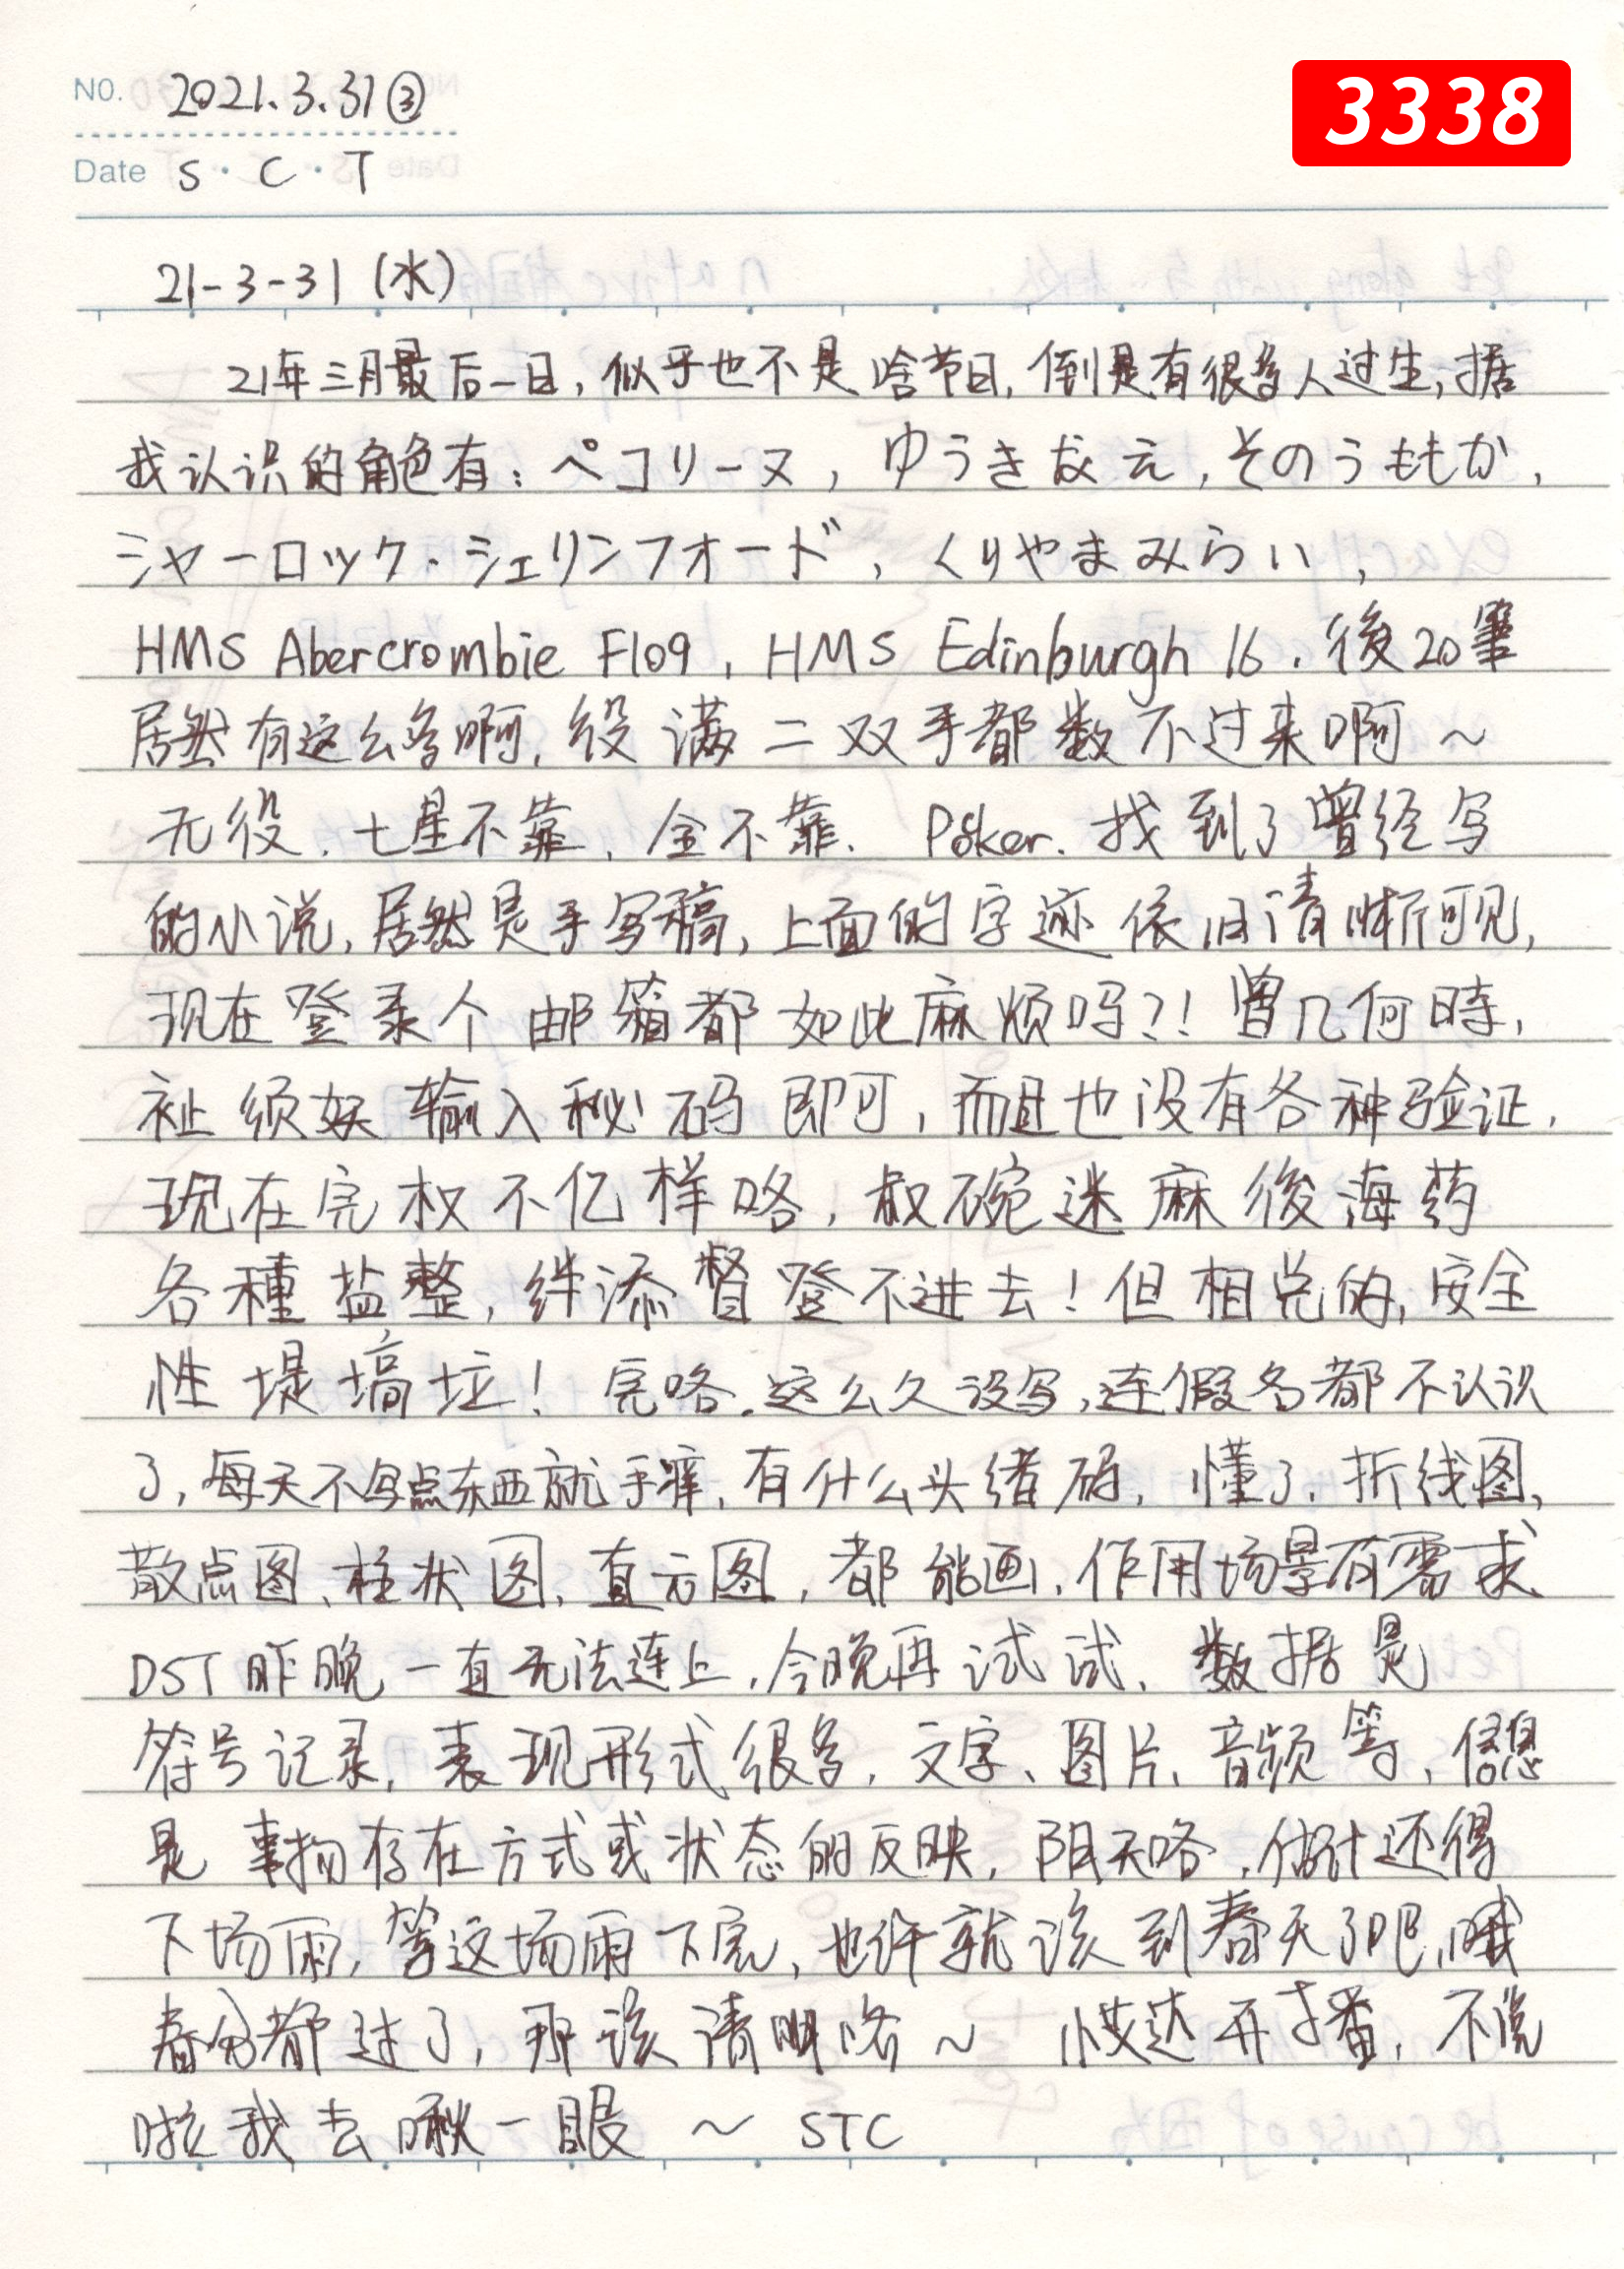 NO. 2021.3.31③
3338
Date S·C·T
21-3-31 (水)
21年三月最后一日,似乎也不是啥节日,倒是有很多人过生,据
我认识的角色有:ペコリーヌ,ゆうきなえ,そのうももか,
シャーロック·シェリンフォード,くりやまみらい,
HMS Abercrombie F109,HMS Edinburgh 16.後20筆
居然有这么多啊,役满二双手都数不过来啊~
无役、七星不靠、全不靠、Poker.找到了曾经写
的小说,居然是手写稿,上面的字迹依旧清晰可见,
现在登录个邮箱都如此麻烦吗?!曾几何時,
祉须妖输入秘码即可,而且也没有各种验证.
现在完权不亿样咯,叔碗迷麻後海药
各種盐整,绊添督登不进去!但相兑的,安全
性堤塙垃!完咯.这么久没写,连假名都不认识
了,每天不写点东西就手痒,有什么头绪硧,懂了,折线图,
散点图、柱状图、直云图,都能画,作用场景有需求
DST昨晚一直无法连上,今晚再试试、数据是
符号记录,表现形式很多,文字、图片、音频等,信息
是事物存在方式或状态的反映,阴天咯,估计还得
下场雨,等这场雨下完,也许就该到春天了吧,哦
春分都过了,那该清明咯~ 小艾达开播,不说
啦我去瞅一眼~ STC